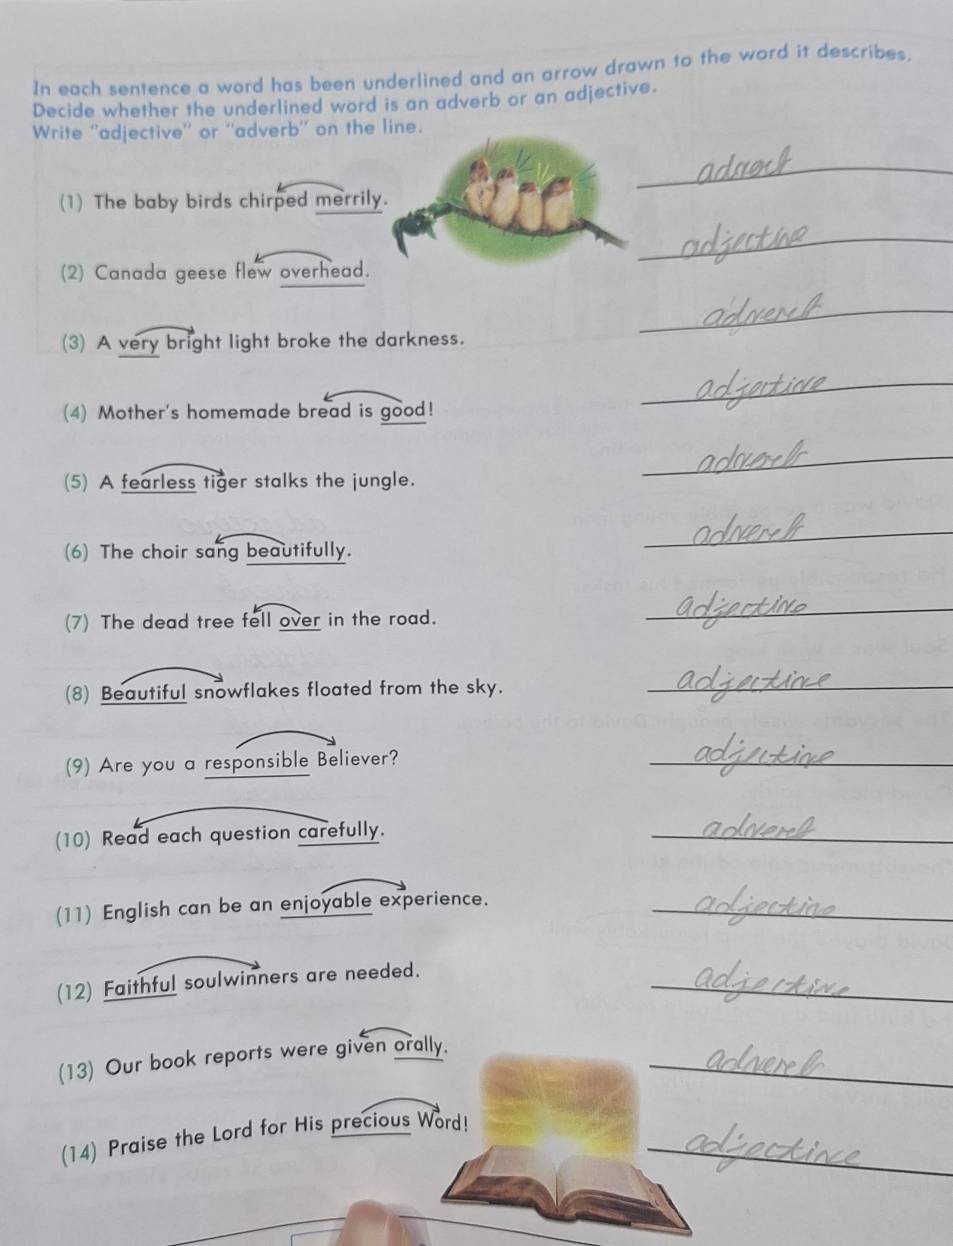 In each sentence a word has been underlined and an arrow drawn to the word it describes.
Decide whether the underlined word is an adverb or an adjective.
Write "adjective" or "adverb" on the line.
(1) The baby birds chirped merrily.
(2) Canada geese flew overhead. adjective
(3) A very bright light broke the darkness. adverb
(4) Mother's homemade bread is good! adjective
(5) A fearless tiger stalks the jungle. adverb
(6) The choir sang beautifully. adverb
(7) The dead tree fell over in the road. adjective
(8) Beautiful snowflakes floated from the sky. adjective
(9) Are you a responsible Believer? adjective
(10) Read each question carefully. adverb
(11) English can be an enjoyable experience. adjective
(12) Faithful soulwinners are needed. adjective
(13) Our book reports were given orally. adverb
(14) Praise the Lord for His precious Word! adjective